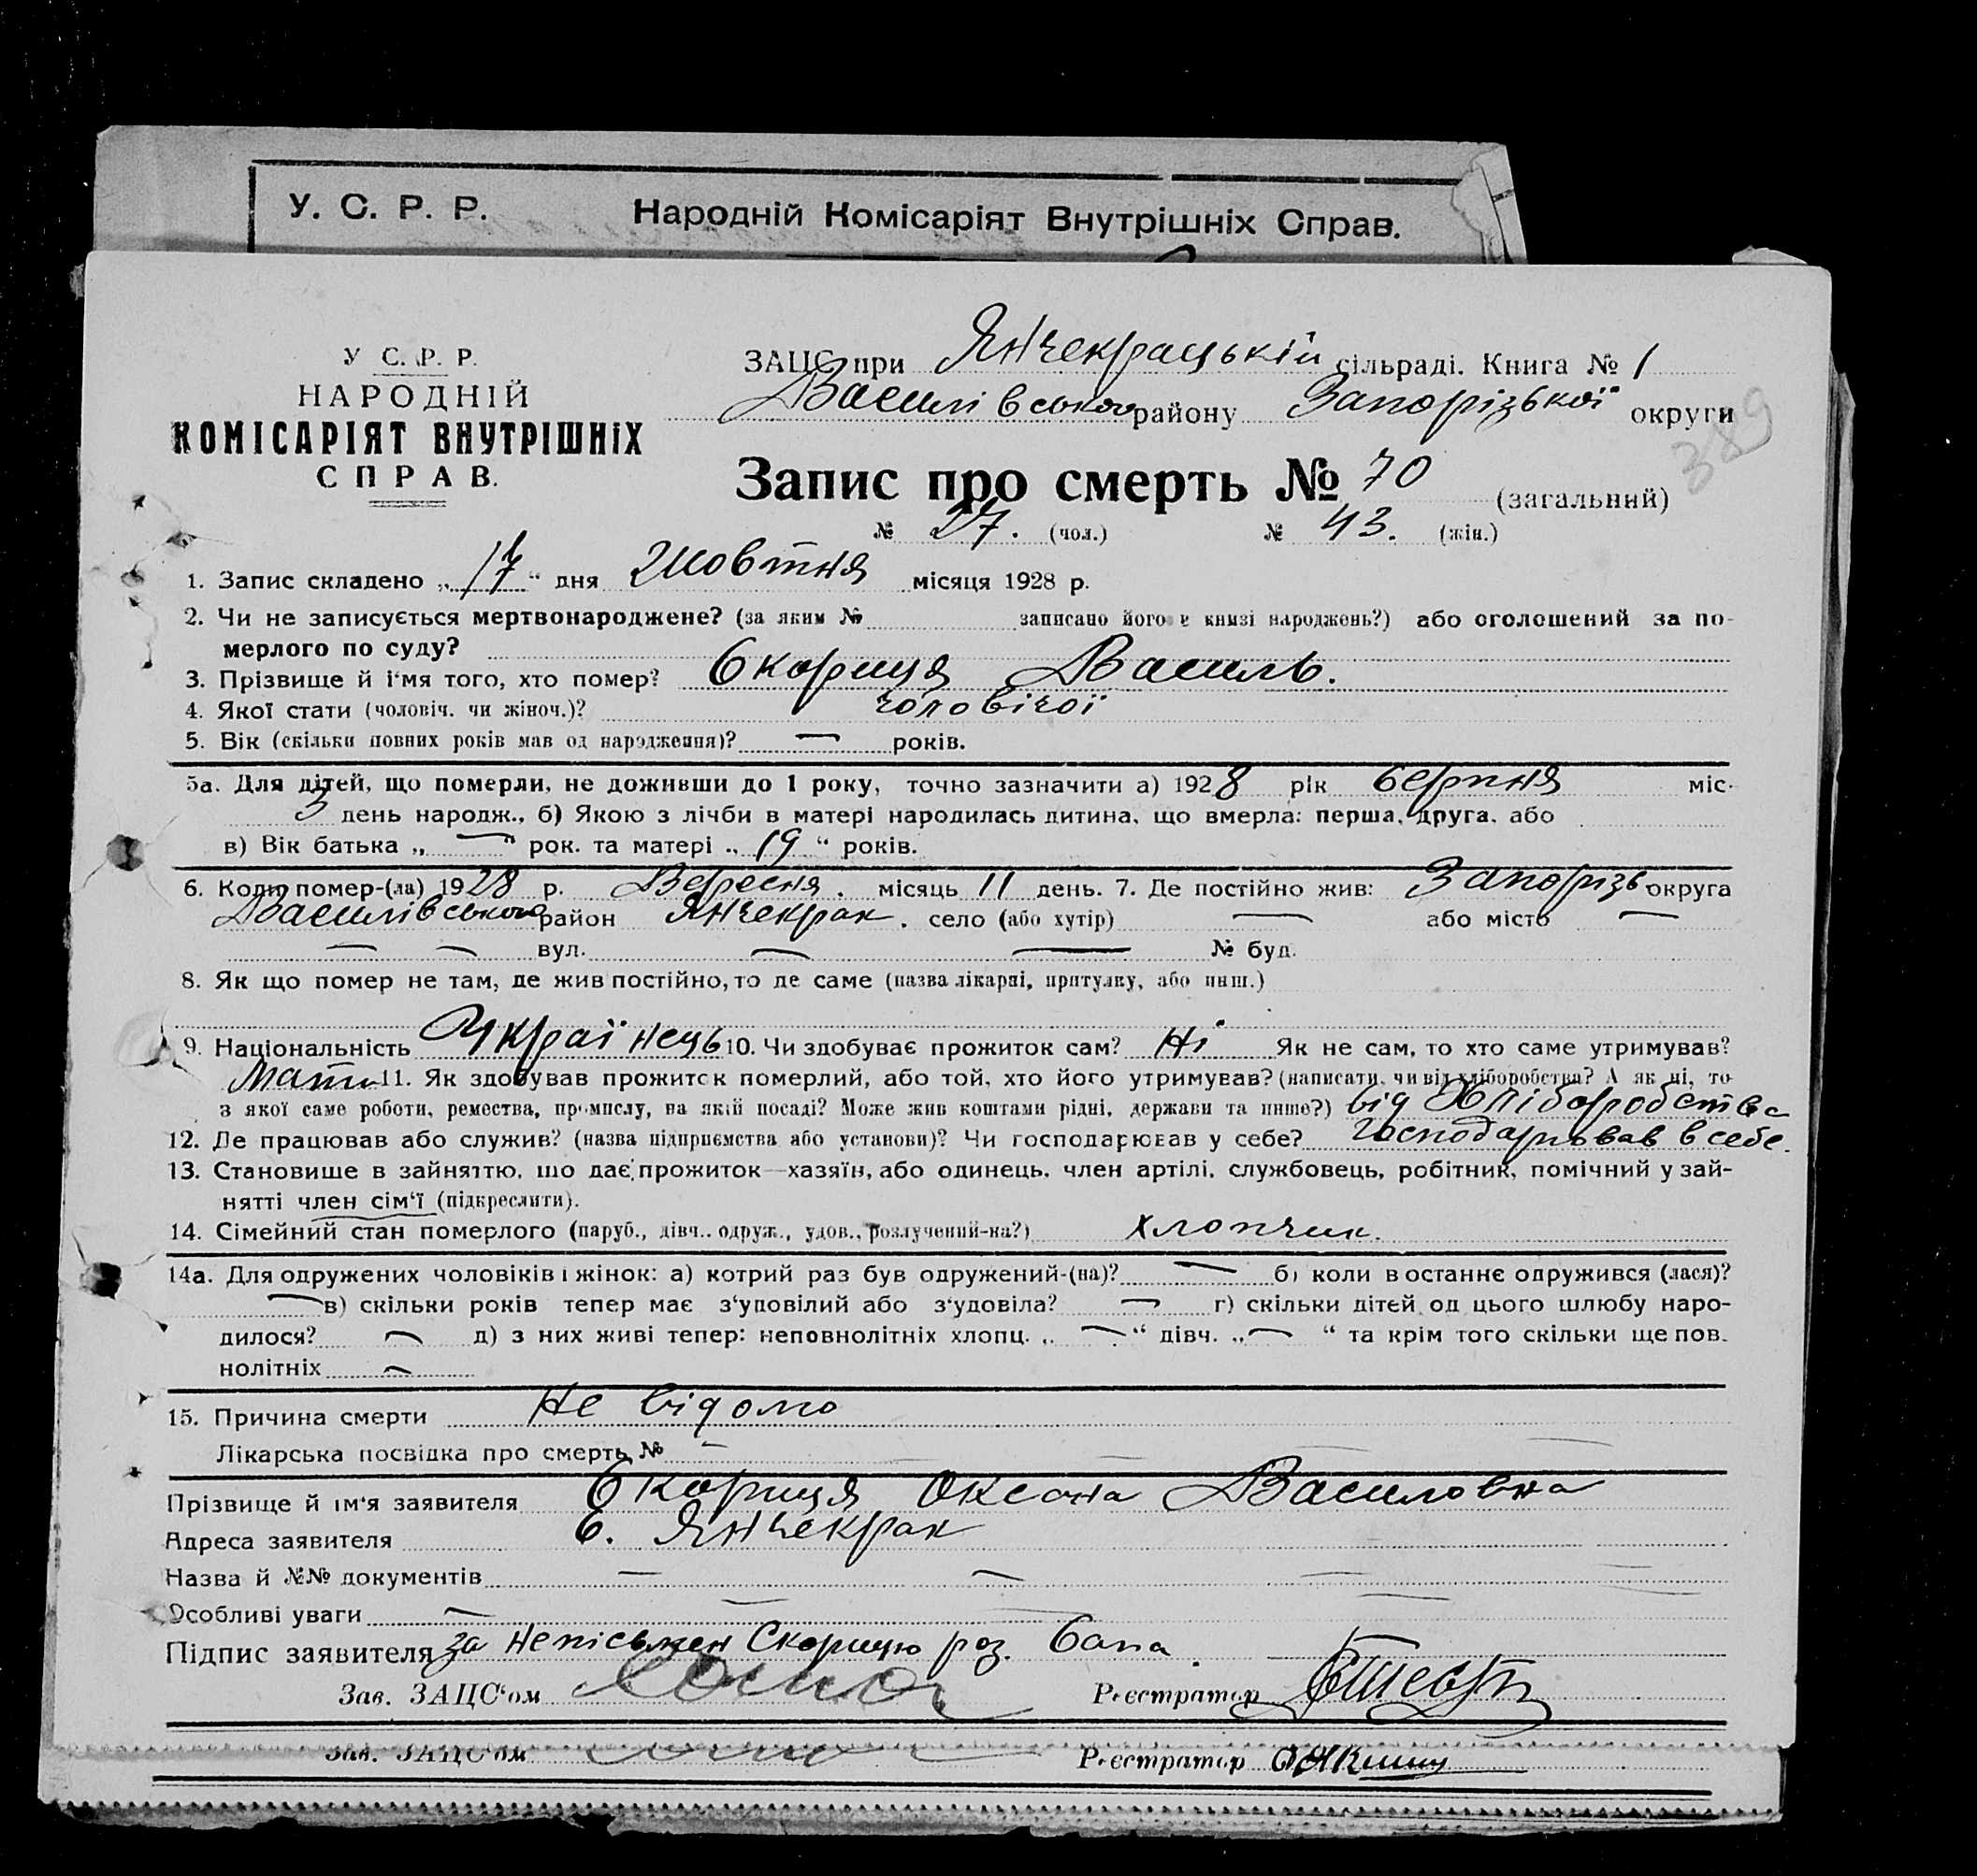 У. С. Р. Р. Народній Комісаріят Внутрішніх Справ.
У С. Р. Р.
НАРОДНІЙ
КОМІСАРІЯТ ВНУТРІШНІХ
СПРАВ.
ЗАЦС при Янчекрацькій сільраді. Книга № 1
Василівського району Запорізької округи
389
Запис про смерть № 70 (загальний)
№ 27. (чол.) № 43. (жін.)
1. Запис складено „17“ дня Жовтня місяця 1928 р.
2. Чи не записується мертвонароджене? (за яким № записано його в книзі народжень?) або оголошений за по-
мерлого по суду?
3. Прізвище й і‘мя того, хто помер? Скориця Василь.
4. Якої стати (чоловіч. чи жіноч.)? чоловічої
5. Вік (скільки повних років мав од народження)? — років.
5а. Для дітей, що померли, не доживши до 1 року, точно зазначити а) 1928 рік серпня міс.
3 день народж., б) Якою з лічби в матері народилась дитина, що вмерла: перша, друга, або
в) Вік батька „—“ рок. та матері „19“ років.
6. Коли помер-(ла) 1928 р. Вересня. місяць 11 день. 7. Де постійно жив: Запорізь округа
Василівського район Янчекрак. село (або хутір) — або місто —
— — вул. — — № буд.
8. Як що помер не там, де жив постійно, то де саме (назва лікарні, притулку, або инш.)
9. Національність Українець 10. Чи здобуває прожиток сам? Ні Як не сам, то хто саме утримував?
Мати 11. Як здобував прожиток померлий, або той, хто його утримував? (написати, чи від хліборобства? А як ні, то
з якої саме роботи, ремества, промислу, на якій посаді? Може жив коштами рідні, держави та инше?) від Хліборобства
12. Де працював або служив? (назва підприємства або установи)? Чи господарював у себе? господарював в себе.
13. Становище в зайнятто, що дає прожиток—хазяїн, або одинець, член артілі, службовець, робітник, помічний у зай-
нятті член сім‘ї (підкреслити).
14. Сімейний стан померлого (паруб., дівч.. одруж., удов., розлучений-на?) хлопчик.
14а. Для одружених чоловіків і жінок: а) котрий раз був одружений-(на)? — б) коли в останнє одружився (лася)?
— в) скільки років тепер має з‘удовілий або з‘удовіла? — г) скільки дітей од цього шлюбу наро-
дилося? — д) з них живі тепер: неповнолітніх хлопц. „—“ дівч. „—“ та крім того скільки ще пов.
нолітніх —
15. Причина смерти Не відомо
Лікарська посвідка про смерть № —
Прізвище й ім‘я заявителя Скориця Оксана Василовна
Адреса заявителя С. Янчекрак
Назва й №№ документів — —
Особливі уваги —
Підпис заявителя за непісьмен Скорицю роз.
Зав. ЗАЦС‘ом Реєстратор
Зав. ЗАЦС‘ом Реєстратор